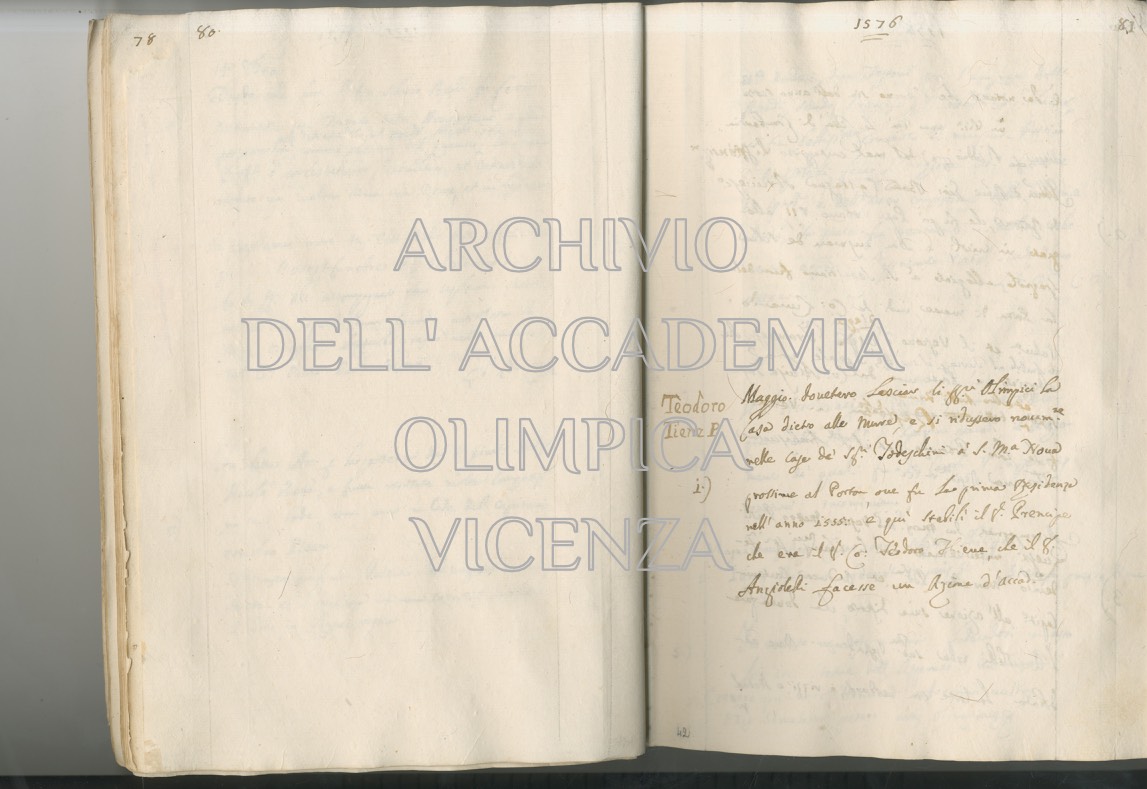 78
80.
1576
81
ARCHIVIO
DELL' ACCADEMIA
OLIMPICA
VICENZA
Teodoro
Tiene P.
i.)
Maggio. dovetero lasciar li SS.ri Olimpici la
Casa dietro alle Mure, e si ridussero novam.te
nelle case de' SS.ri Todeschini à S. M.a Nova
prossime al Porton ove fu la prima Residenza
nell' anno 1555: e qui stabilì il S.r Prencipe
che era il S.r Co: Teodoro Tiene, che il S.r
Angiolelli facesse un Regime d'Accad.
42